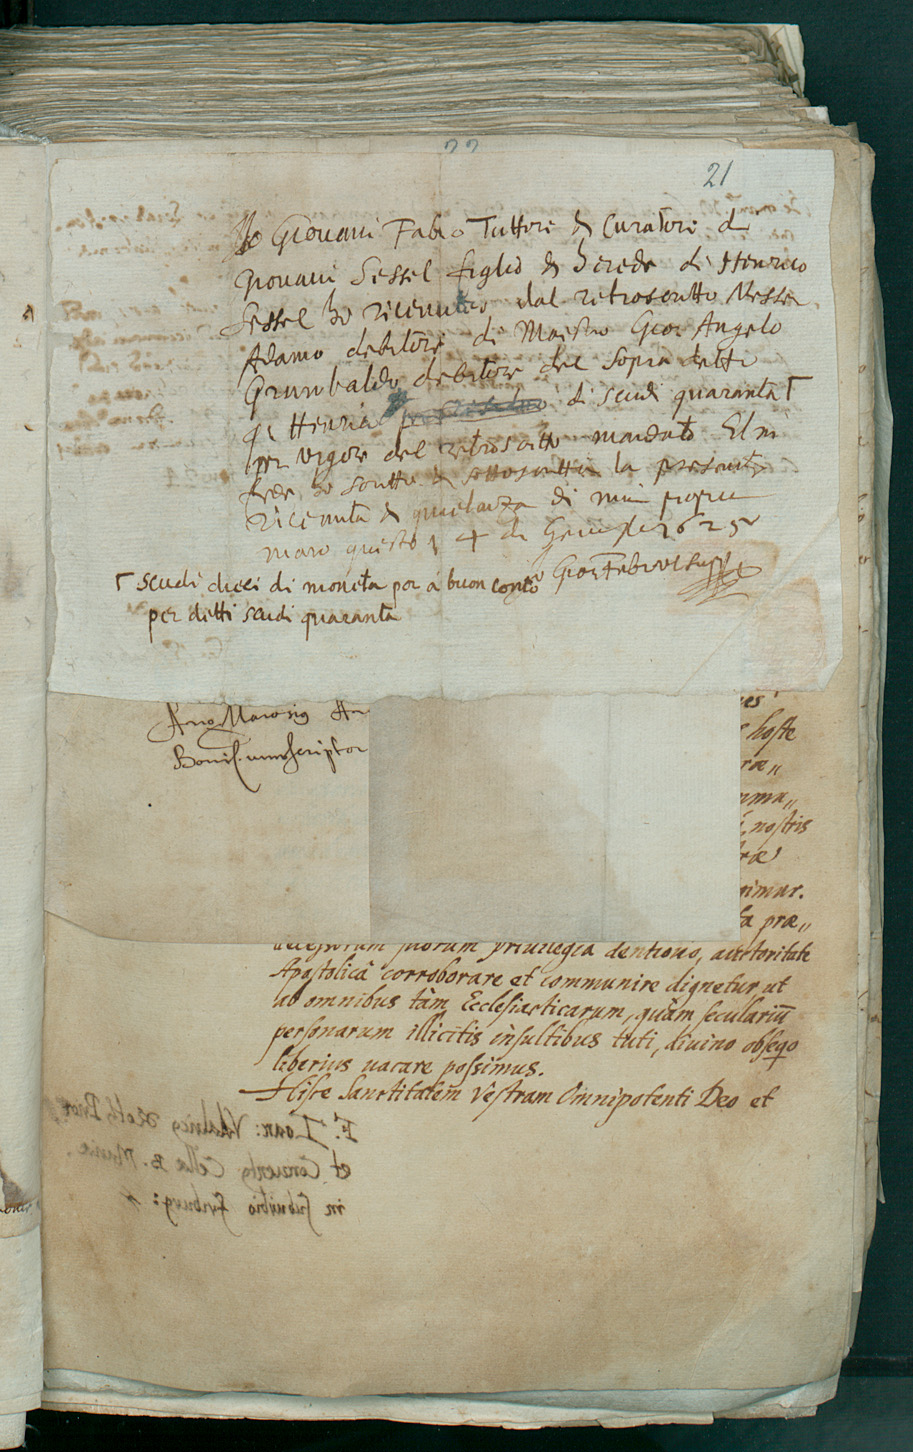 22
21
Io Giovani Fabro Tuttore & Curatore di
giovani Sessel figlio & herede di Henrico
Sessel ho ricevuto dal retroscritto Messer
Adamo debitore di Maestro Gior Angelo
Grimbaldo debitore del sopra detto
Henrico di scudi quaranta Γ
per vigore del retroscitto mandato El in
fede ho scritto & sottoscritto la presente
ricevuta & quietanza di mia propria
mano questo 4 di 1625
Γ scudi dieci di moneta por à buon conto
per detti scudi quaranta
scriptor
hoste
ræ„
nostris
imur.
præ„
suorum priuilegia dentiono, auctoritate
Apostolicâ corroborare et communire dignetur, ut
ab omnibus tàm Ecclesiasticarum, quàm seculariū
personarum illicitis insultibus tuti, diuino obseqo
liberius uacare possimus.
Hisce Sanctitatem Vestram Omnipotenti Deo et
F. Ioan:
et Conuentq Cellæ B. Mariæ.
in suburbio friburg: